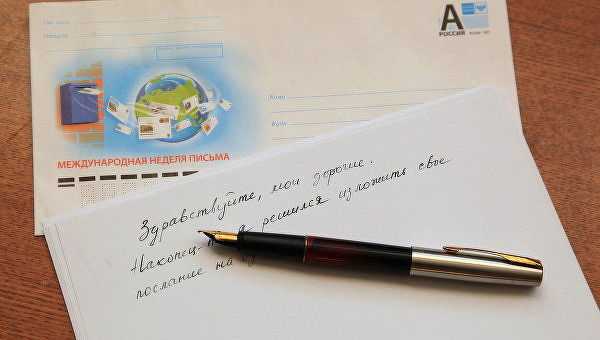 А
РОССИЯ
Кому
Куда
МЕЖДУНАРОДНАЯ НЕДЕЛЯ ПИСЬМА
Здравствуйте, мои дорогие.
Наконец- я решился изложить свое
послание на